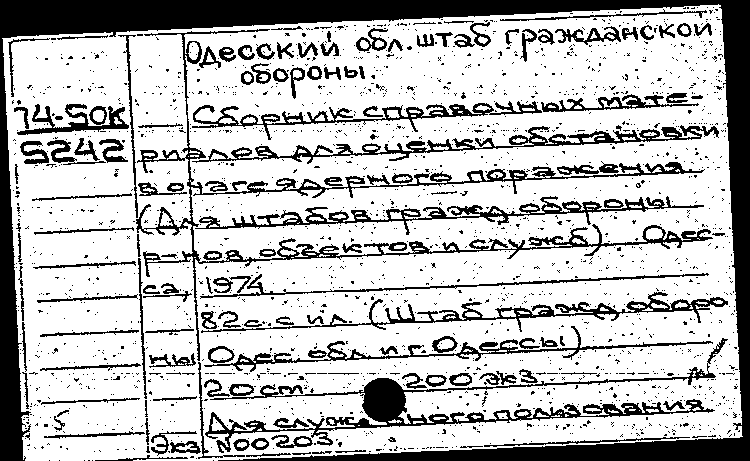 Одесский обл. штаб гражданской
обороны.
74-50к
5242
Сборник справочных мате-
риалов для оценки обстановки
в очаге ядерного поражения
(Для штабов гражд. обороны
р-нов, объектов и служб). Одес-
са, 1974
82с. с ил. (Штаб гражд. оборо
ны Одес. обл. и г. Одессы)
20 см. 200 экз.
5 Для служебного пользования
Экз. №00203.